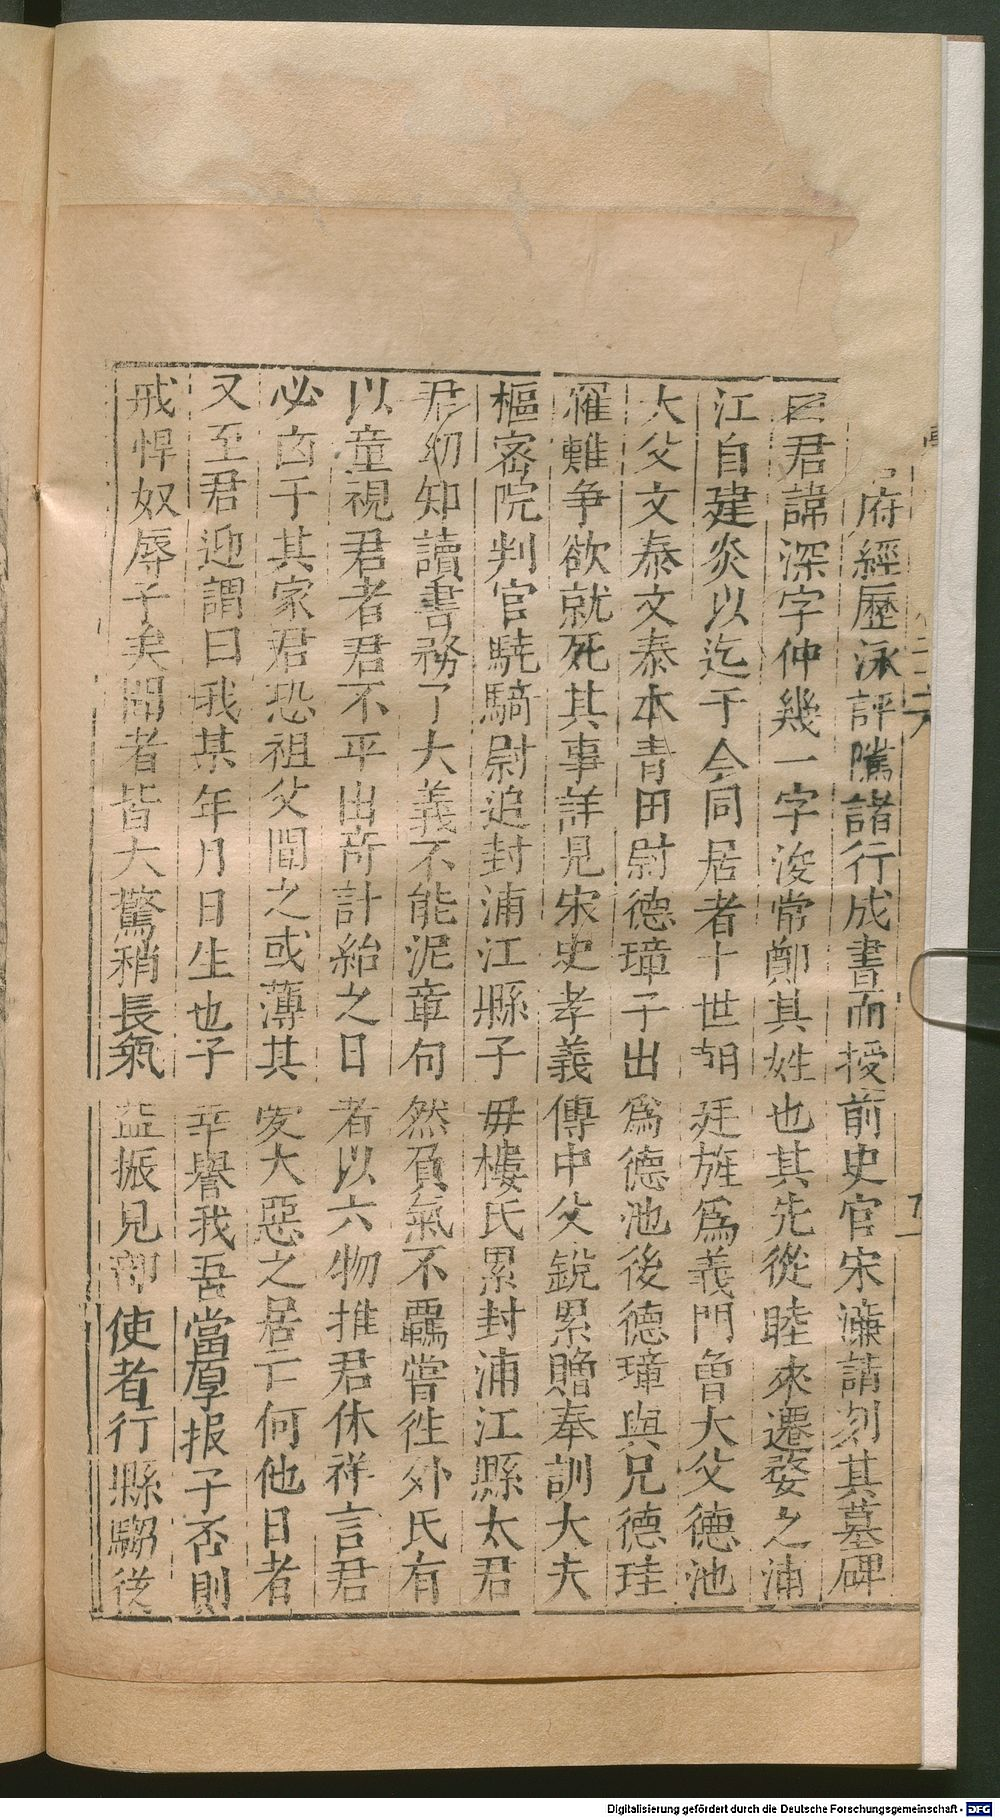 府經歷泳評騭諸行成書而授前史官宋濂請刻其墓碑
曰君諱深字仲幾一字浚常鄭其姓也其先從睦來遷婺之浦
江自建炎以迄于今同居者十世朝廷旌爲義門曾大父德池
大父文泰文泰本青田尉德璋子出爲德池後德璋與兄德珪
罹難争欲就死其事詳見宋史孝義傳中父銳累贈奉訓大夫
樞密院判官驍騎尉追封浦江縣子毋樓氏累封浦江縣太君
君幼知讀書務了大義不能泥章句然負氣不羈嘗徃外氏有
以童視君者君不平出竒計紿之日者以六物推君休祥言君
必凶于其家君恐祖父聞之或薄其愛大惡之居亡何他日者
又至君迎謂曰我某年月日生也子幸譽我吾當厚报子否則
戒悍奴辱子矣聞者皆大驚稍長氣益振見部使者行縣騶從
Digitalisierung gefördert durch die Deutsche Forschungsgemeinschaft - DFG